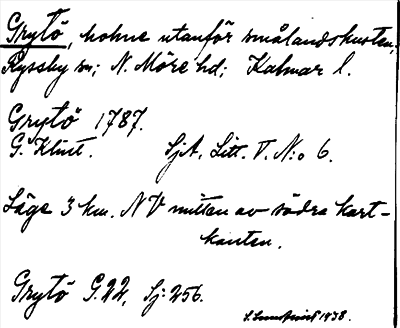 Grytö, holme utanför smålandskusten;
Ryssby sn; N. Möre hd; Kalmar l.
Grytö 1787.
G. Klint. SjA. Litt. T. N:o 6.
Läge 3 km. NV mitten av södra kart-
kanten.
Grytö G.22, Sj: 256.
1938.